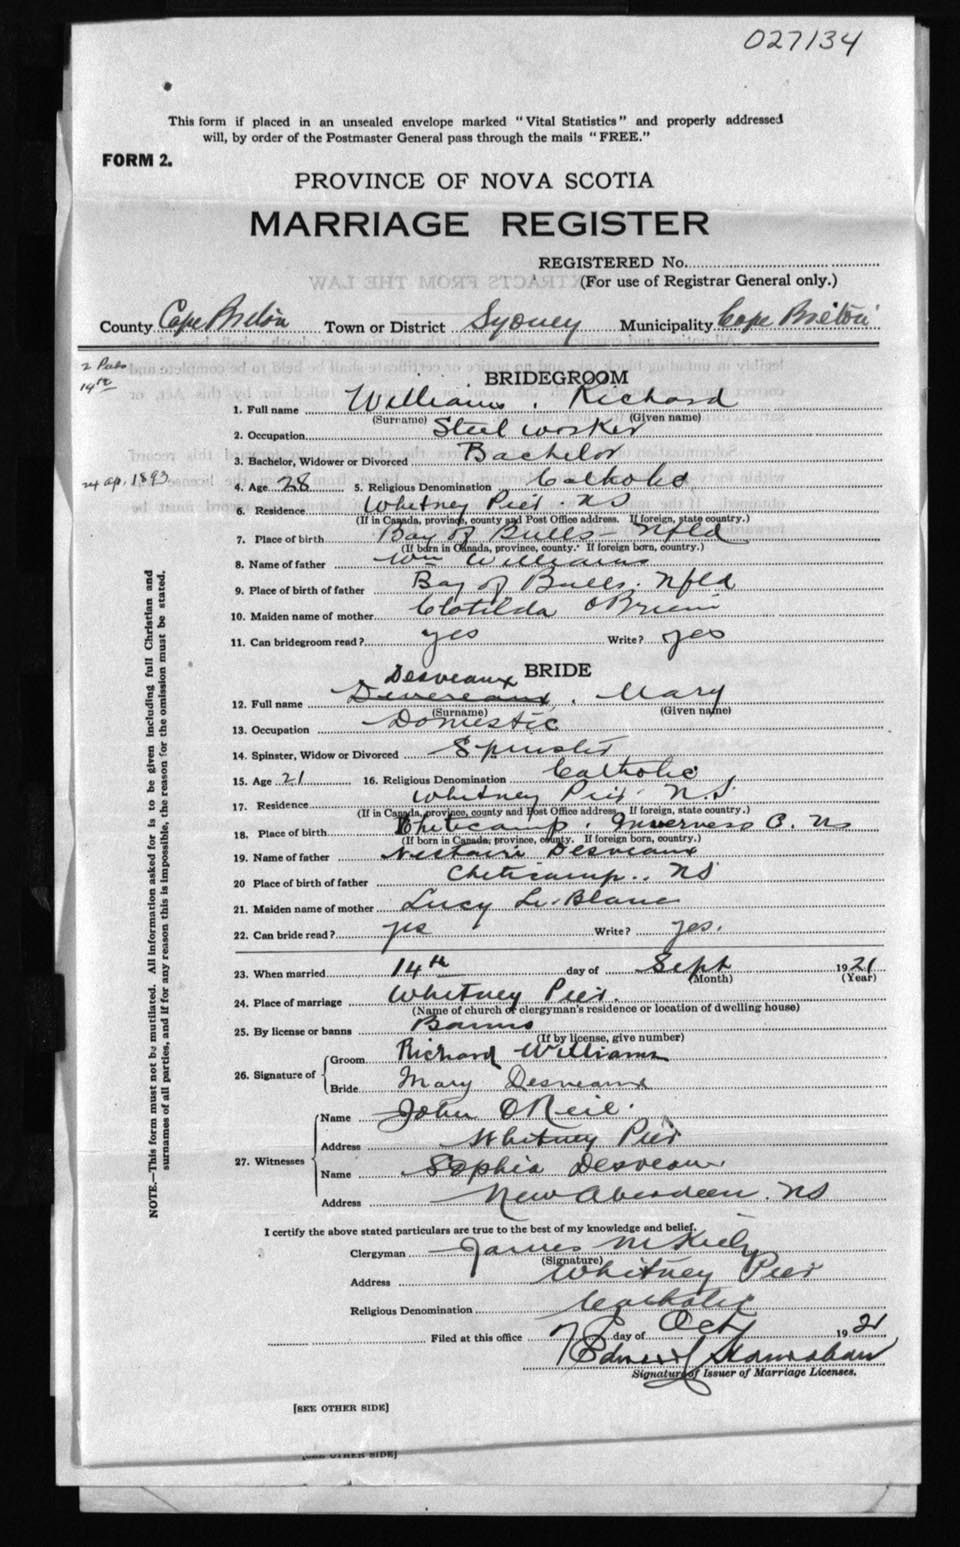 027134
This form if placed in an unsealed envelope marked "Vital Statistics" and properly addressed
will, by order of the Postmaster General pass through the mails "FREE."
FORM 2.
PROVINCE OF NOVA SCOTIA
MARRIAGE REGISTER
REGISTERED No.
(For use of Registrar General only.)
County Cape Breton Town or District Sydney Municipality Cape Breton
14th
BRIDEGROOM
1. Full name Williams, Richard
(Surname) (Given name)
2. Occupation Steel worker
3. Bachelor, Widower or Divorced Bachelor
24 Ap. 1893
4. Age 28 5. Religious Denomination Catholic
6. Residence Whitney Pier NS
(If in Canada, province, county and Post Office address. If foreign, state country.)
7. Place of birth Bay of Bulls - Nfld
(If born in Canada, province, county. If foreign born, country.)
8. Name of father Wm Williams
9. Place of birth of father Bay of Bulls. Nfld
10. Maiden name of mother Clotilda O'Brien
11. Can bridegroom read? yes Write? yes
BRIDE
Desveaux
12. Full name Devereaux, Mary
(Surname) (Given name)
13. Occupation Domestic
14. Spinster, Widow or Divorced Spinster
15. Age 21 16. Religious Denomination Catholic
17. Residence Whitney Pier N.S.
(If in Canada, province, county and Post Office address. If foreign, state country.)
18. Place of birth Cheticamp, Inverness C. NS
(If born in Canada, province, county. If foreign born, country.)
19. Name of father Desveaux
20 Place of birth of father Cheticamp.. NS
21. Maiden name of mother Lucy Le Blanc
22. Can bride read? yes Write? yes.
23. When married 14th day of Sept 1921
(Month) (Year)
24. Place of marriage Whitney Pier.
(Name of church or clergyman's residence or location of dwelling house)
25. By license or banns Banns
(If by license, give number)
26. Signature of
Groom Richard Williams
Bride Mary Desveaux
27. Witnesses
Name John O'Neil.
Address Whitney Pier
Name Sophia Desveaux
Address New Aberdeen. NS
I certify the above stated particulars are true to the best of my knowledge and belief.
Clergyman James
(Signature)
Address Whitney Pier
Religious Denomination Catholic
Filed at this office 7 day of Oct 1921
Signature of Issuer of Marriage Licenses.
[SEE OTHER SIDE]
[SEE OTHER SIDE]
NOTE.—This form must not be mutilated. All information asked for is to be given including full Christian and
surnames of all parties, and if for any reason this is impossible, the reason for the omission must be stated.